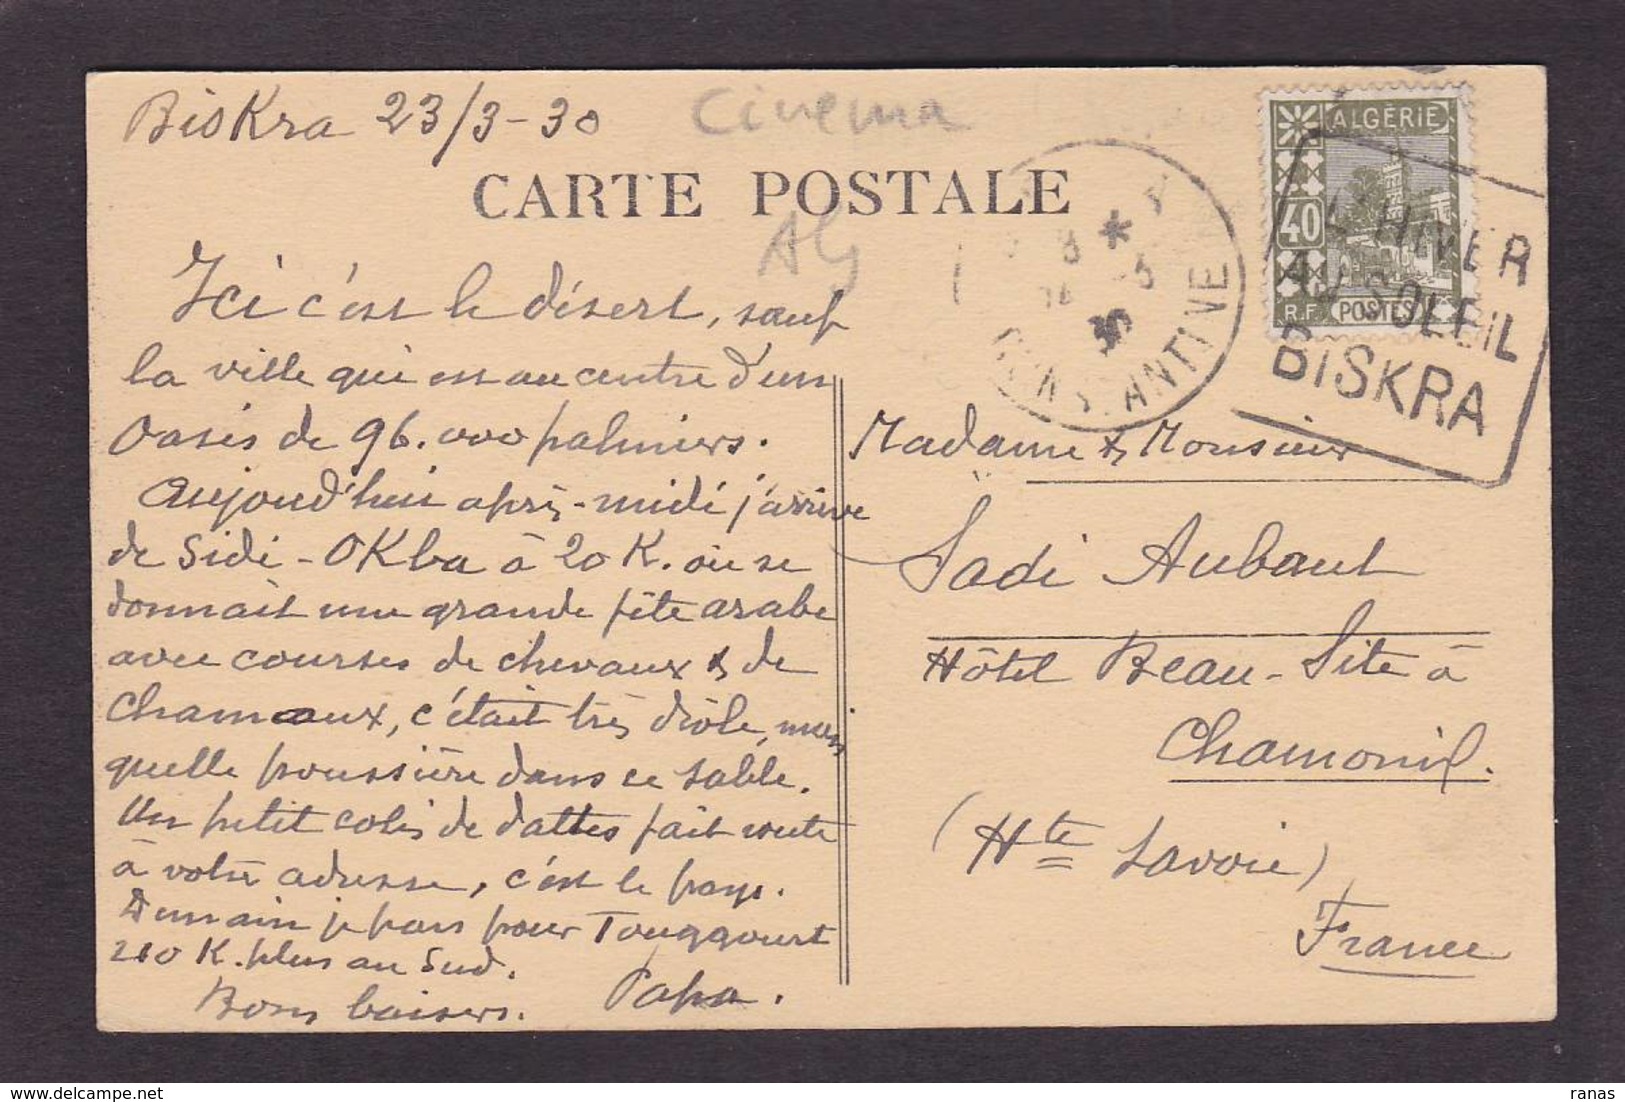 Biskra 23/3-30
cinema
CARTE POSTALE
Alg
Ici c'est le désert, sauf
la ville qui est au centre d'un
Oasis de 96.000 palmiers.
Aujourd'hui après-midi j'arrive
de Sidi-OKba à 20 K. où se
donnait une grande fête arabe
avec courses de chevaux & de
Chameaux, c'était très drôle, mais
quelle poussière dans ce sable.
Un petit colis de dattes fait route
à votre adresse, c'est le pays.
Demain je pars pour Touggourt
210 K. plus au Sud.
Bons baisers. Papa.
CONSTANTINE
ALGÉRIE
40
R.F. POSTES
L'HIVER
AU SOLEIL
BISKRA
Madame & Monsieur
Sadi Aubaut
Hôtel Beau-Site à
Chamonix.
(Hte Savoie)
France
ranas